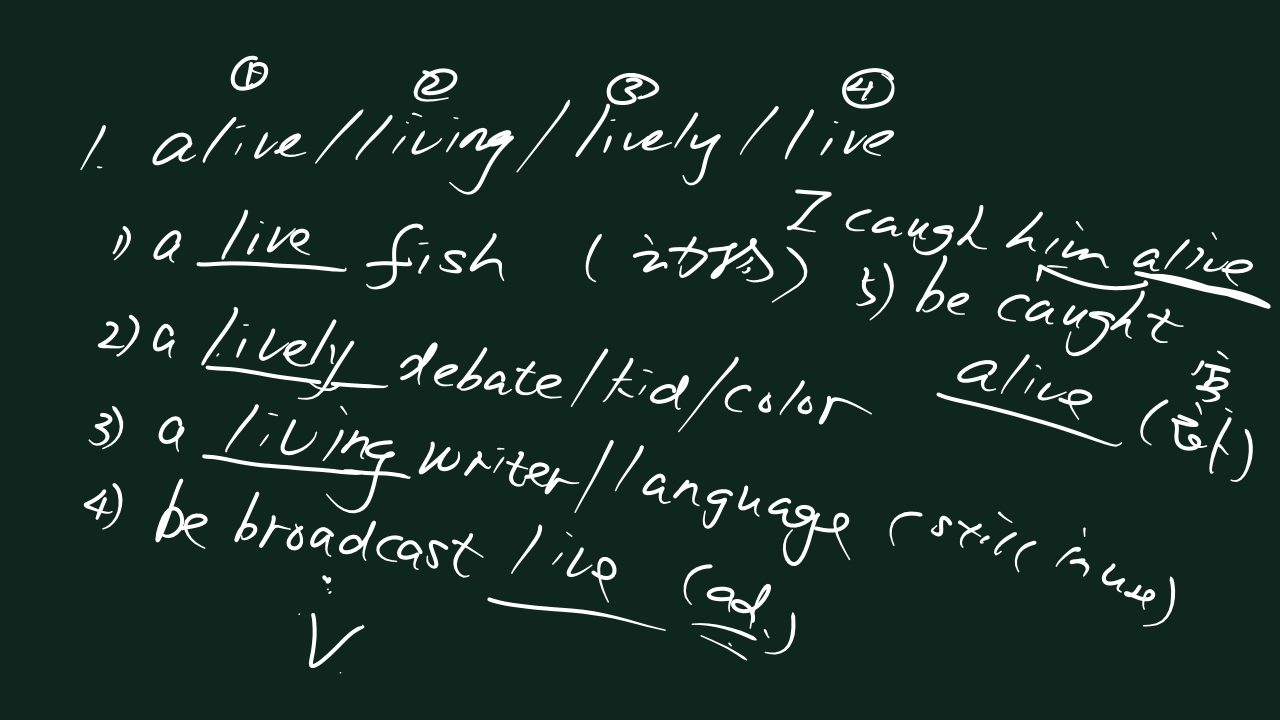 ① ② ③ ④
1. alive/living/lively/live
1) a live fish (动物)
2) a lively debate/kid/color
3) a living writer/language (still in use)
4) be broadcast live (ad.)
V
I caugh him alive
5) be caught
alive